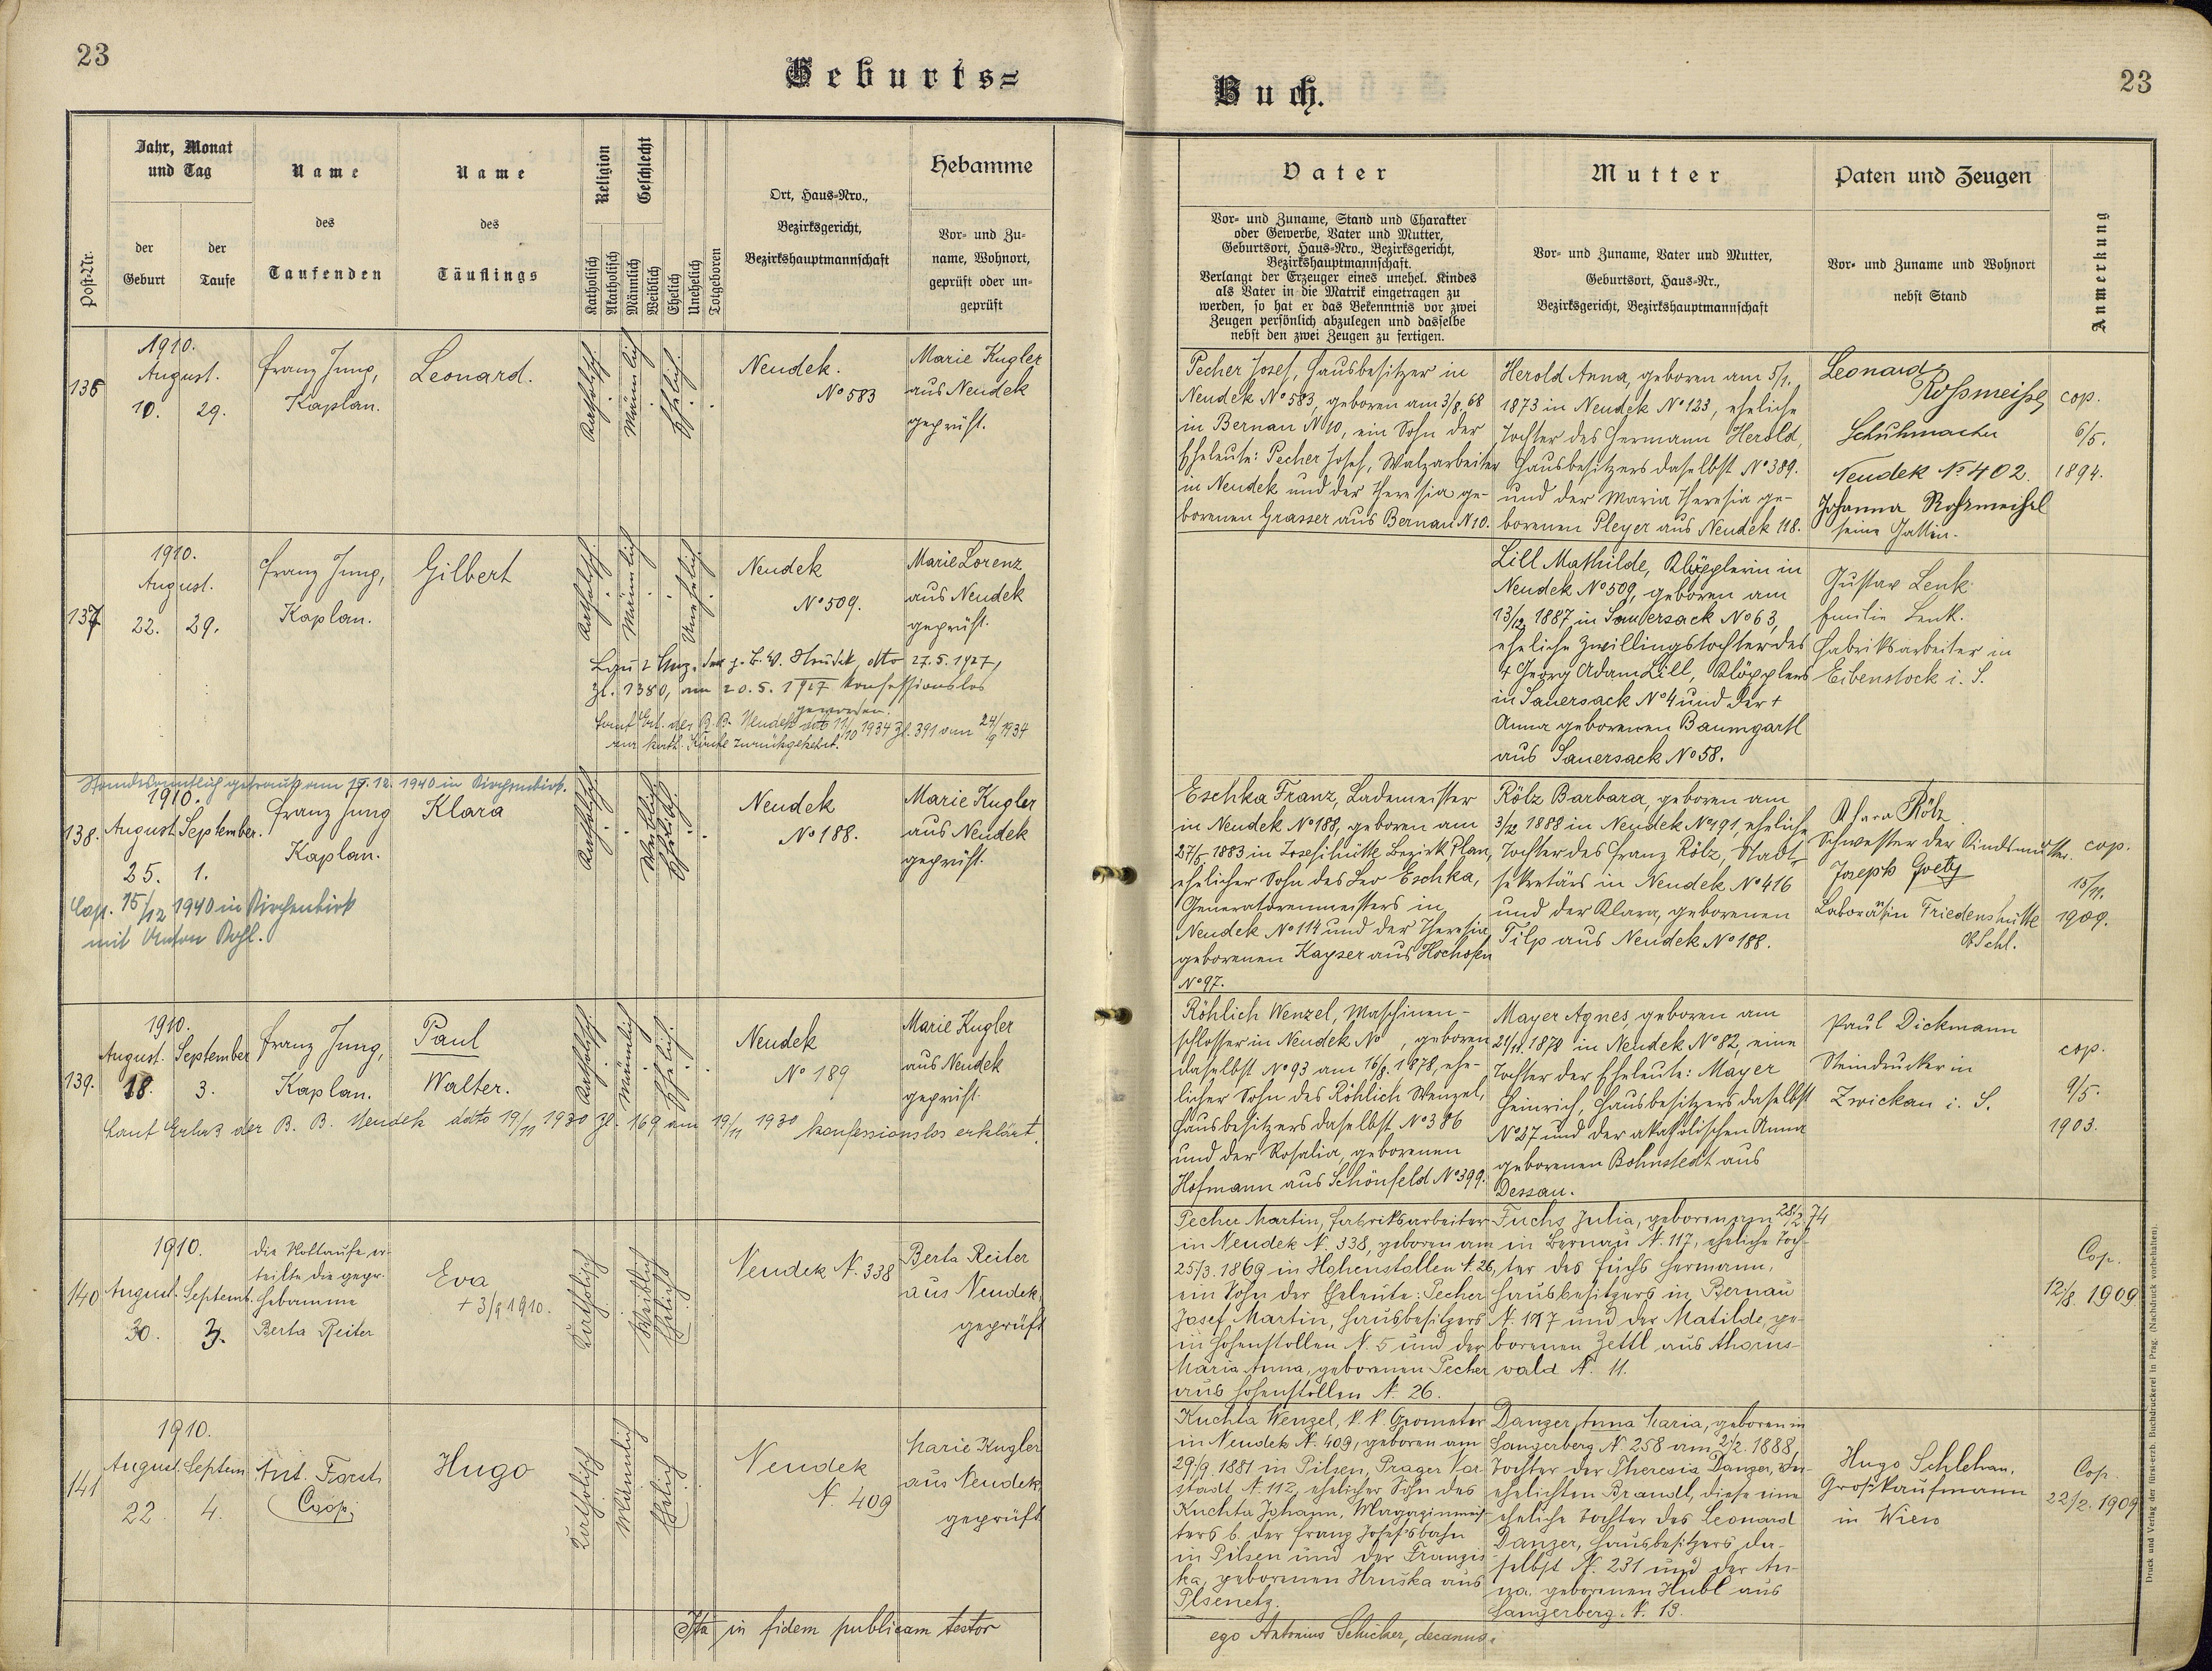 23
Geburts=
Post-Nr.
Jahr, Monat
und Tag
der
Geburt
der
Taufe
Name
des
Taufenden
Name
des
Täuflings
Religion
Katholisch
Akatholisch
Geschlecht
Männlich
Weiblich
Ehelich
Unehelich
Totgeboren
Ort, Haus-Nro.,
Bezirksgericht,
Bezirkshauptmannschaft
Hebamme
Vor- und Zu-
name, Wohnort,
geprüft oder un-
geprüft
136
1910.
August.
10. 29.
Franz Jung,
Kaplan.
Leonard.
Katholisch
Männlich
Ehelich.
Neudek.
No 583
Marie Kugler
aus Neudek
geprüft.
137
1910.
August.
22. 29.
Franz Jung,
Kaplan.
Gilbert
Katholisch
Männlich
Unehelich
Neudek
No 509.
Marie Lorenz
aus Neudek
geprüft.
27.5.1927,
Zl. 1380, am 20.5.1927 konfessionslos
geworden.
Laut Erl. des B. B. Neudek dto 11/10 1934 Zl. 391 vom 24/9 1934
zur kath. Kirche zurückgekehrt.
Standesamtlich getraut am 17.12.1940 in Kirchenbirk.
138.
1910.
August September.
25. 1.
Franz Jung
Kaplan.
Klara
Katholisch
Weiblich
Ehelich.
Neudek
No 188.
Marie Kugler
aus Neudek
geprüft.
Cop. 15/12 1940 in Kirchenbirk
mit Anton
139.
1910.
August. September
18. 3.
Franz Jung,
Kaplan.
Paul
Walter.
Katholisch
Männlich
Ehelich.
Neudek
No 189
Marie Kugler
aus Neudek
geprüft.
Laut Erlaß der B. B. Neudek dato 19/11 1930 Zl. 169 am 19/11 1930 konfessionslos erklärt.
140
1910.
August. Septemb.
30. 3.
die Nottaufe er-
teilte die gepr.
Hebamme
Berta Reiter
Eva
+ 3/9 1910.
Katholisch
Weiblich
Ehelich
Neudek N. 338
Berta Reiter
aus Neudek,
geprüft
141
1910.
August. Septem.
22. 4.
Ant. Forst,
Coop.
Hugo
Katholisch
Männlich
Ehelich
Neudek
N. 409
Marie Kugler
aus Neudek
geprüft
Ita in fidem publicam testor
Buch.
23
Vater
Vor- und Zuname, Stand und Charakter
oder Gewerbe, Vater und Mutter,
Geburtsort, Haus-Nro., Bezirksgericht,
Bezirkshauptmannschaft.
Verlangt der Erzeuger eines unehel. Kindes
als Vater in die Matrik eingetragen zu
werden, so hat er das Bekenntnis vor zwei
Zeugen persönlich abzulegen und dasselbe
nebst den zwei Zeugen zu fertigen.
Mutter
Vor- und Zuname, Vater und Mutter,
Geburtsort, Haus-Nr.,
Bezirksgericht, Bezirkshauptmannschaft
Paten und Zeugen
Vor- und Zuname und Wohnort
nebst Stand
Anmerkung
Pecher Josef, Hausbesitzer in
Neudek No 583, geboren am 3/8. 68
in Bernau N 10, ein Sohn der
Eheleute: Pecher Josef, Walzarbeiter
in Neudek und der Theresia ge-
borenen Grasser aus Bernau N 10.
Herold Anna, geboren am 5/1.
1873 in Neudek No 123, eheliche
Tochter des Hermann Herold,
Hausbesitzers daselbst No 389.
und der Maria Theresia ge-
borenen Pleyer aus Neudek 118.
Leonard
Roßmeißl
Schuhmacher
Neudek No 402.
Johanna Roßmeißl
seine Gattin.
cop.
6/5.
1894.
Lill Mathilde, Klöpplerin in
Neudek No 509, geboren am
13/12 1887 in Sauersack No 63,
eheliche Zwillingstochter des
+ Georg Adam Lill, Klöpplers
in Sauersack No 4 und der +
Anna geborenen Baumgartl
aus Sauersack No 58.
Gustav Lenk
Emilie Lenk.
Fabriksarbeiter in
Eibenstock i. S.
Eschka Franz, Lademeister
in Neudek No 188, geboren am
27/5. 1883 in Josefihütte Bezirk Plan,
ehelicher Sohn des Leo Eschka,
Generatorenmeisters in
Neudek No 114 und der Theresia
geborenen Kayser aus Hochofen
No 97.
Rölz Barbara, geboren am
3/12 1888 in Neudek No 491, eheliche
Tochter des Franz Rölz, Stadt-
sekretärs in Neudek No 416
und der Klara, geborenen
Tilp aus Neudek No 188.
Klara Rölz
Schwester der Kindsmutter.
Joseph Goetz
Friedenshütte
O/Schl.
cop.
15/11.
1909.
Röhlich Wenzel, Maschinen-
schlosser in Neudek No , geboren
daselbst No 93 am 16/8. 1878, ehe-
licher Sohn des Röhlich Wenzel,
Hausbesitzers daselbst No 386
und der Rosalia, geborenen
Hofmann aus Schönfeld No 399.
Mayer Agnes, geboren am
21/11. 1878 in Neudek No 82, eine
Tochter der Eheleute: Mayer
Heinrich, Hausbesitzers daselbst
No 27 und der akatholischen Anna
geborenen Bohnstedt aus
Dessau.
Paul Dickmann
Steindrucker in
Zwickau i. S.
cop.
9/5.
1903.
Pecher Martin, Fabriksarbeiter
in Neudek N. 338, geboren am
25/3. 1869 in Hohenstollen N. 26,
ein Sohn der Eheleute: Pecher
Josef Martin, Hausbesitzers
in Hohenstollen N. 5 und der
Maria Anna, geborenen Pecher
aus Hohenstollen N. 26.
Fuchs Julia, geboren am 28/2. 74
in Bernau N. 117, eheliche Toch-
ter des Fuchs Hermann,
Hausbesitzers in Bernau
N. 117 und der Matilde, ge-
borenen Zettl aus Ahorns-
wald N. 11.
Cop.
12/8. 1909.
Kuchta Wenzel, k. k. Geometer
in Neudek N. 409, geboren am
29/9. 1881 in Pilsen, Prager Vor-
stadt N. 112, ehelicher Sohn des
Kuchta Johann, Magazinmeis-
ters b. der Franz Josefsbahn
in Pilsen und der Franzis
ka, geborenen Hruška aus
Plsenetz.
Danzer Anna Maria, geboren in
Sangerberg N. 258 am 2/2. 1888,
Tochter der Theresia Danzer, ver-
ehelichten Brandl, diese eine
eheliche Tochter des Leonard
Danzer, Hausbesitzers da-
selbst N. 231 und der An-
na, geborenen Hubl aus
Sangerberg N. 13.
Hugo Schlehan,
Großkaufmann
in Wien
Cop.
22/2. 1909
ego Antonius Schicker, decanus.
Druck und Verlag der fürst-erzb. Buchdruckerei in Prag. (Nachdruck vorbehalten).